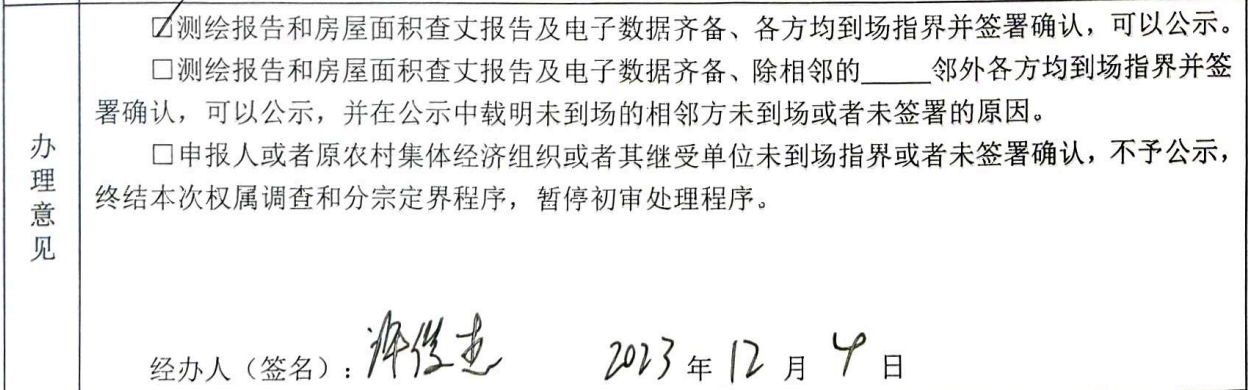 ☑测绘报告和房屋面积查丈报告及电子数据齐备、各方均到场指界并签署确认，可以公示。
□测绘报告和房屋面积查丈报告及电子数据齐备、除相邻的_____邻外各方均到场指界并签
署确认，可以公示，并在公示中载明未到场的相邻方未到场或者未签署的原因。
□申报人或者原农村集体经济组织或者其继受单位未到场指界或者未签署确认，不予公示，
终结本次权属调查和分宗定界程序，暂停初审处理程序。
办理意见
经办人（签名）：许俊杰 2023年12月4日